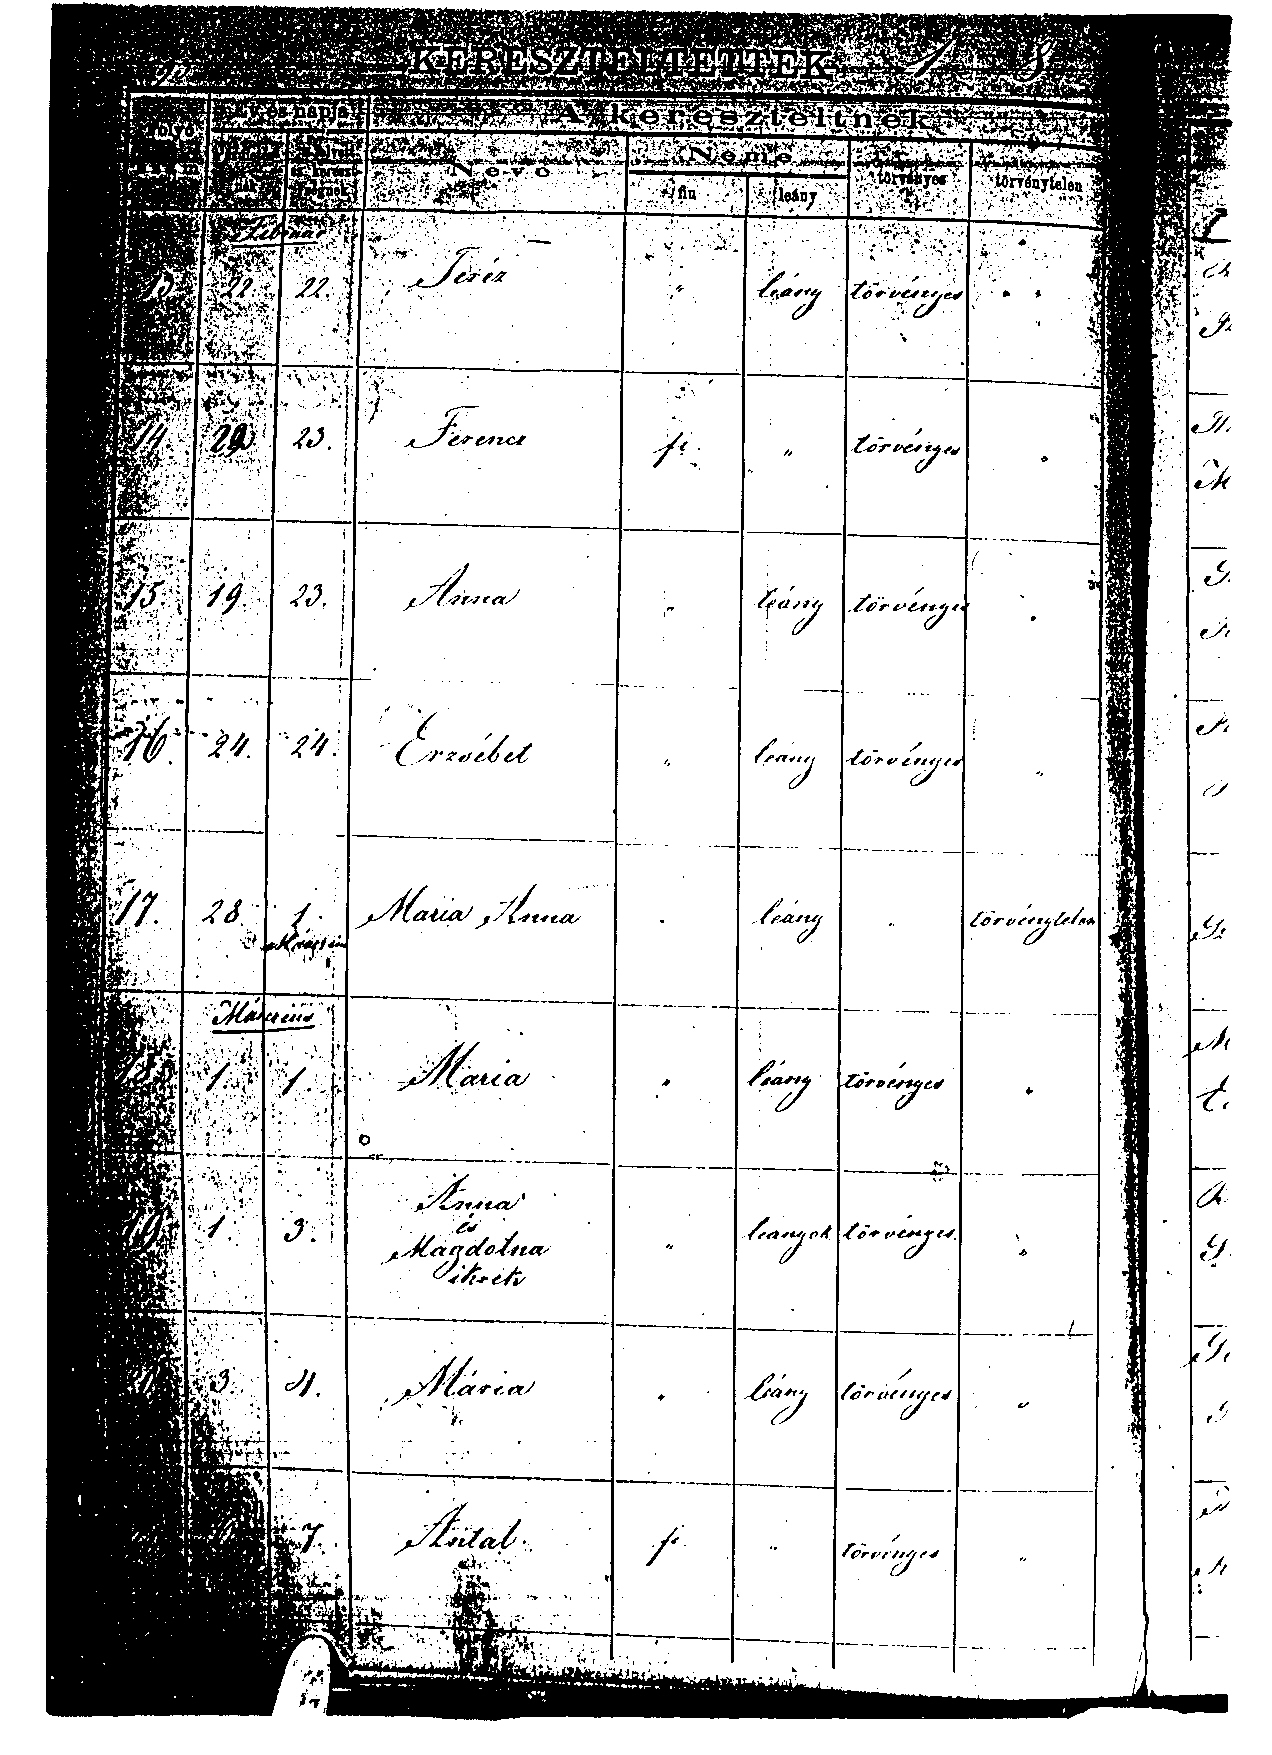 KERESZTELTETTEK 1 8
A kereszteltnek
folyó
és napja
Neve
Neme
fiu
leány
törvényes
törvénytelen
Február
13 22. 22. Teréz " leány törvényes " "
14. 23. Ferencz fi " törvényes "
15. 19. 23. Anna " leány törvényes "
16. 24. 24. Erzsébet " leány törvényes "
17. 28 1. Maria Anna " leány " törvénytelen
Március
18 1. 1. Maria " leány törvényes "
19. 1. 3. Anna
és
Magdolna " leányok törvényes. "
ikrek
3. 4. Mária " leány törvényes "
7. Antal fi " törvényes "